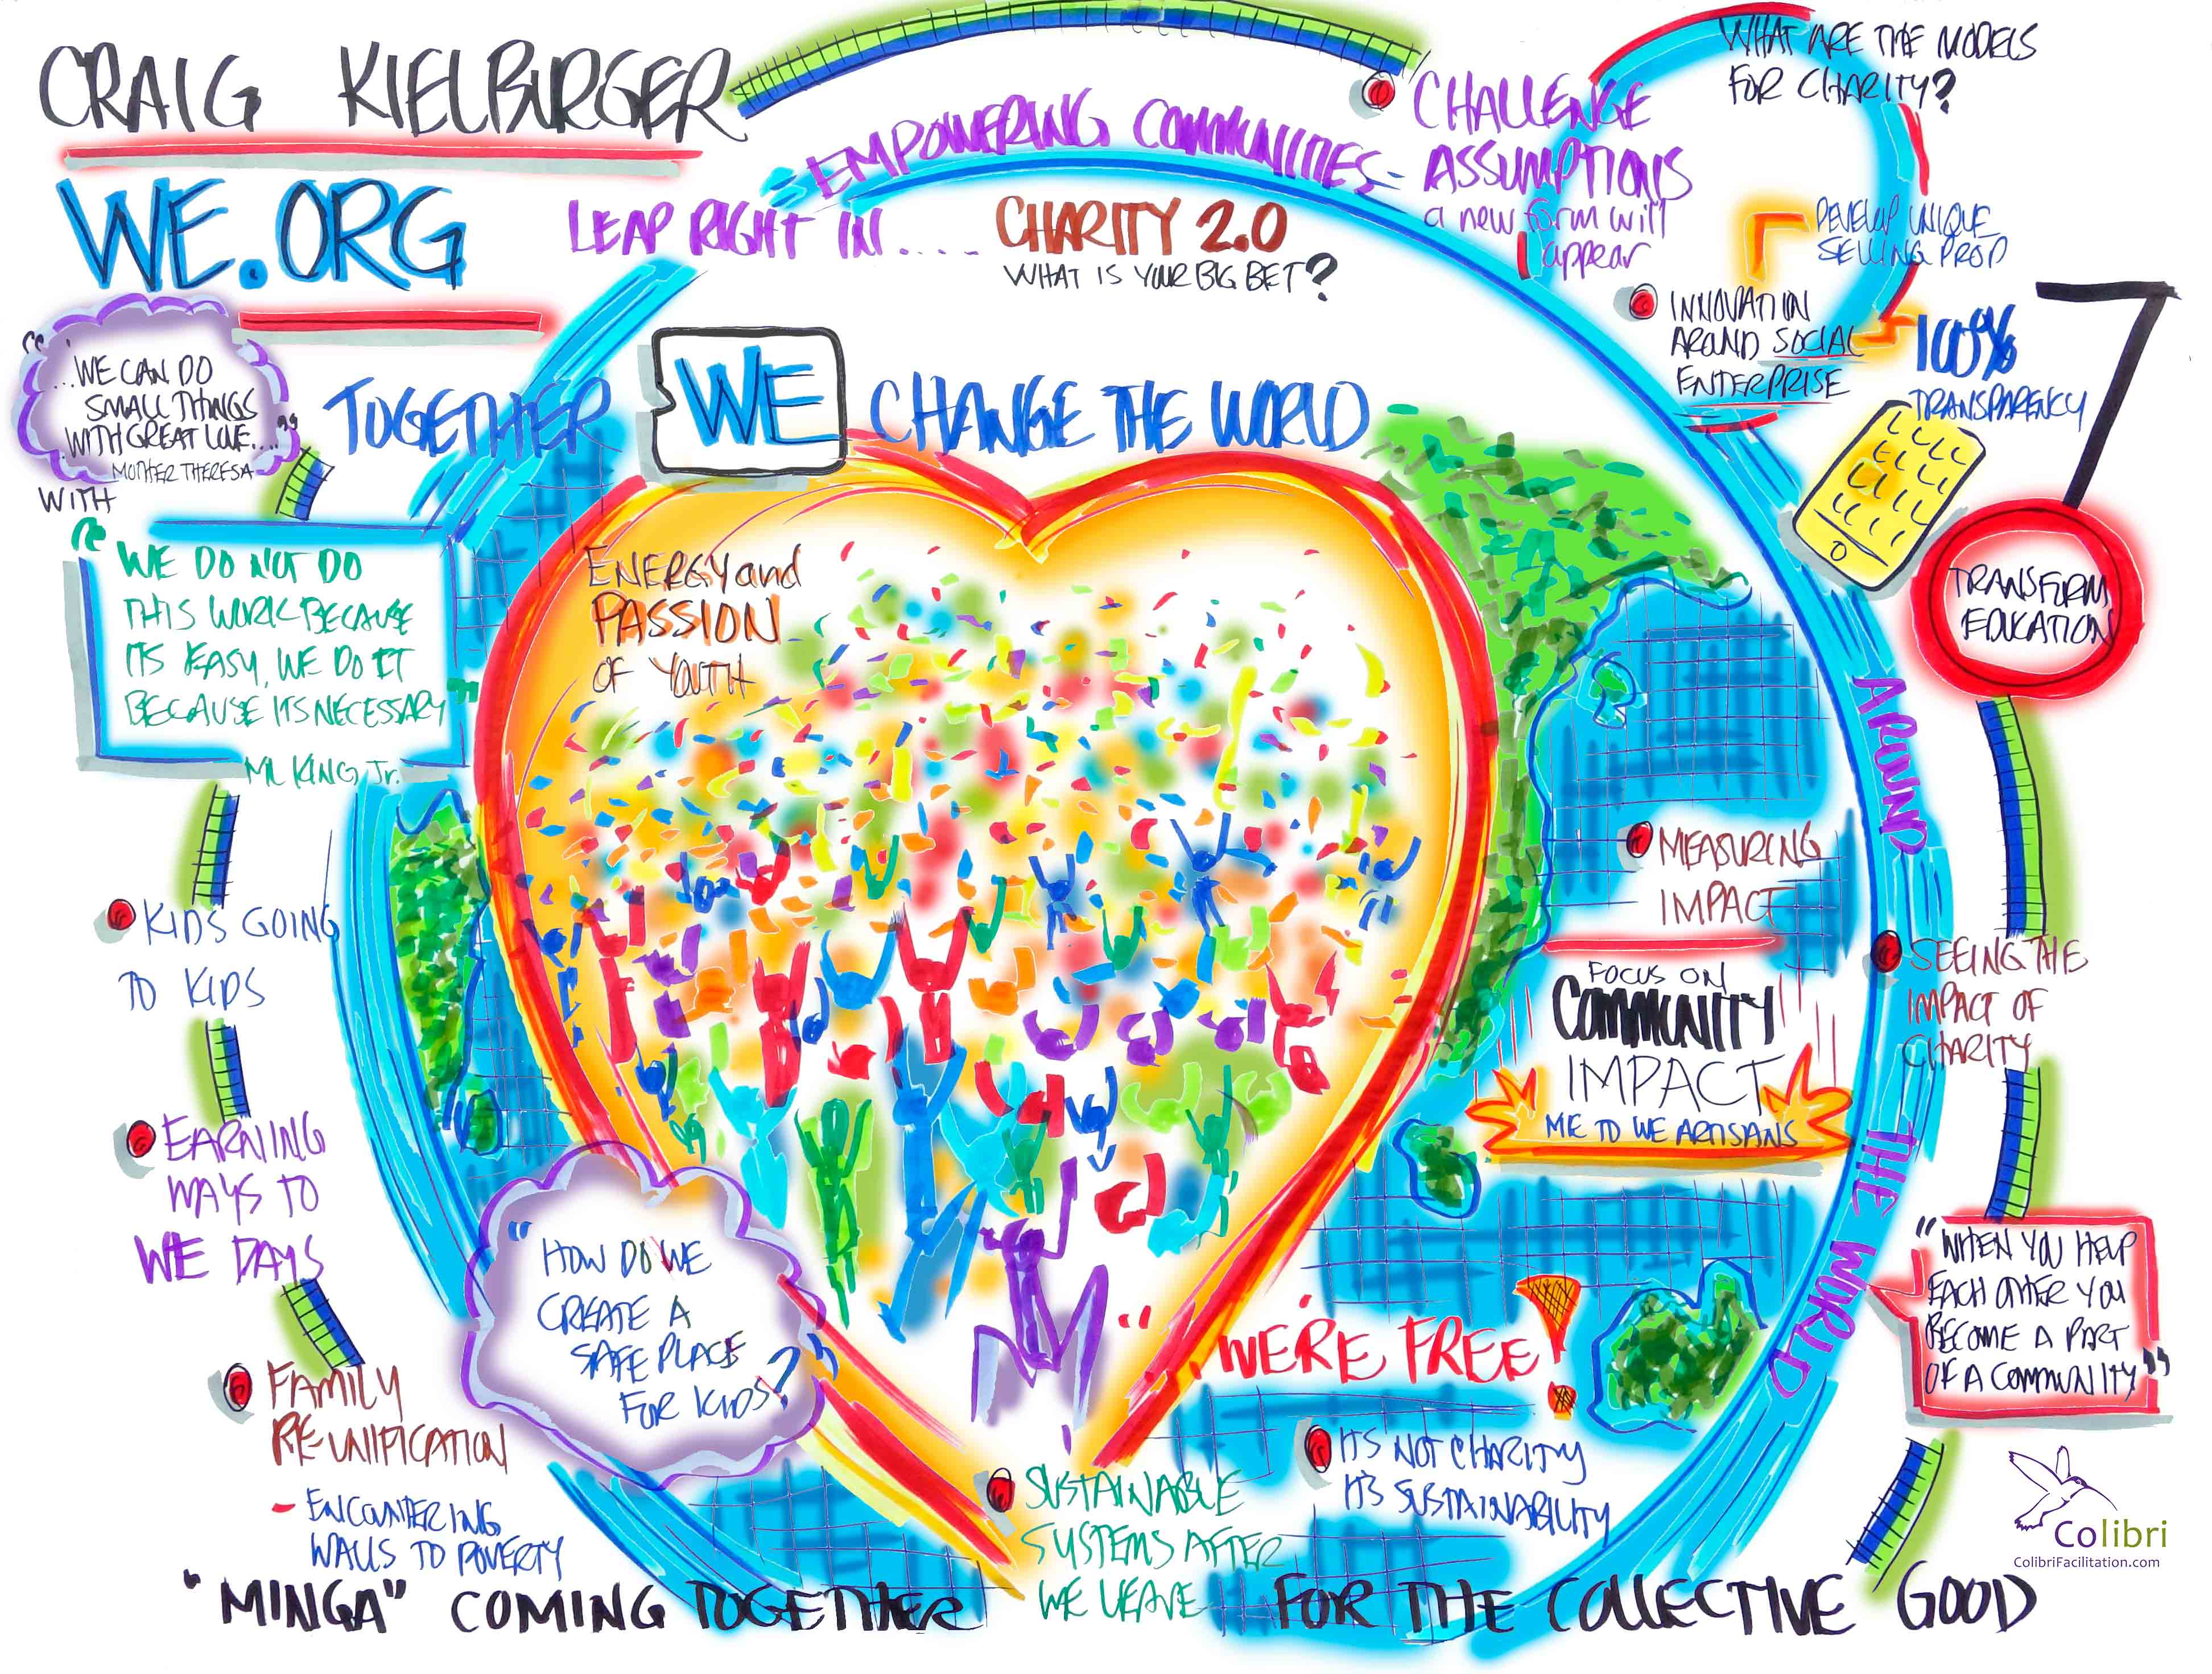 CRAIG KIELBURGER
WE.ORG
"EMPOWERING COMMUNITIES-
LEAP RIGHT IN....
CHARITY 2.0
WHAT IS YOUR BIG BET?
CHALLENGE
ASSUMPTIONS
a new form will
appear
WHAT ARE THE MODELS
FOR CHARITY?
DEVELOP UNIQUE
SELLING PROP
INNOVATION
AROUND SOCIAL
ENTERPRISE
100%
TRANSPARENCY
TRANSFORM
EDUCATION
"...WE CAN DO
SMALL THINGS
WITH GREAT LOVE..."
MOTHER THERESA
WITH
TOGETHER WE CHANGE THE WORLD
"WE DO NOT DO
THIS WORK BECAUSE
ITS EASY, WE DO IT
BECAUSE ITS NECESSARY"
ML KING, Jr.
ENERGY and
PASSION
OF YOUTH
AROUND
THE WORLD
MEASURING
IMPACT
FOCUS ON
COMMUNITY
IMPACT
ME TO WE ARTISANS
SEEING THE
IMPACT OF
CHARITY
KIDS GOING
TO KIDS
EARNING
WAYS TO
WE DAYS
FAMILY
RE-UNIFICATION
- ENCOUNTERING
WALLS TO POVERTY
"HOW DO WE
CREATE A
SAFE PLACE
FOR KIDS?"
"WERE FREE!
ITS NOT CHARITY
IT'S SUSTAINABILITY
SUSTAINABLE
SYSTEMS AFTER
WE LEAVE
"WHEN YOU HELP
EACH OTHER YOU
BECOME A PART
OF A COMMUNITY"
"MINGA" COMING TOGETHER FOR THE COLLECTIVE GOOD
Colibri
ColibriFacilitation.com